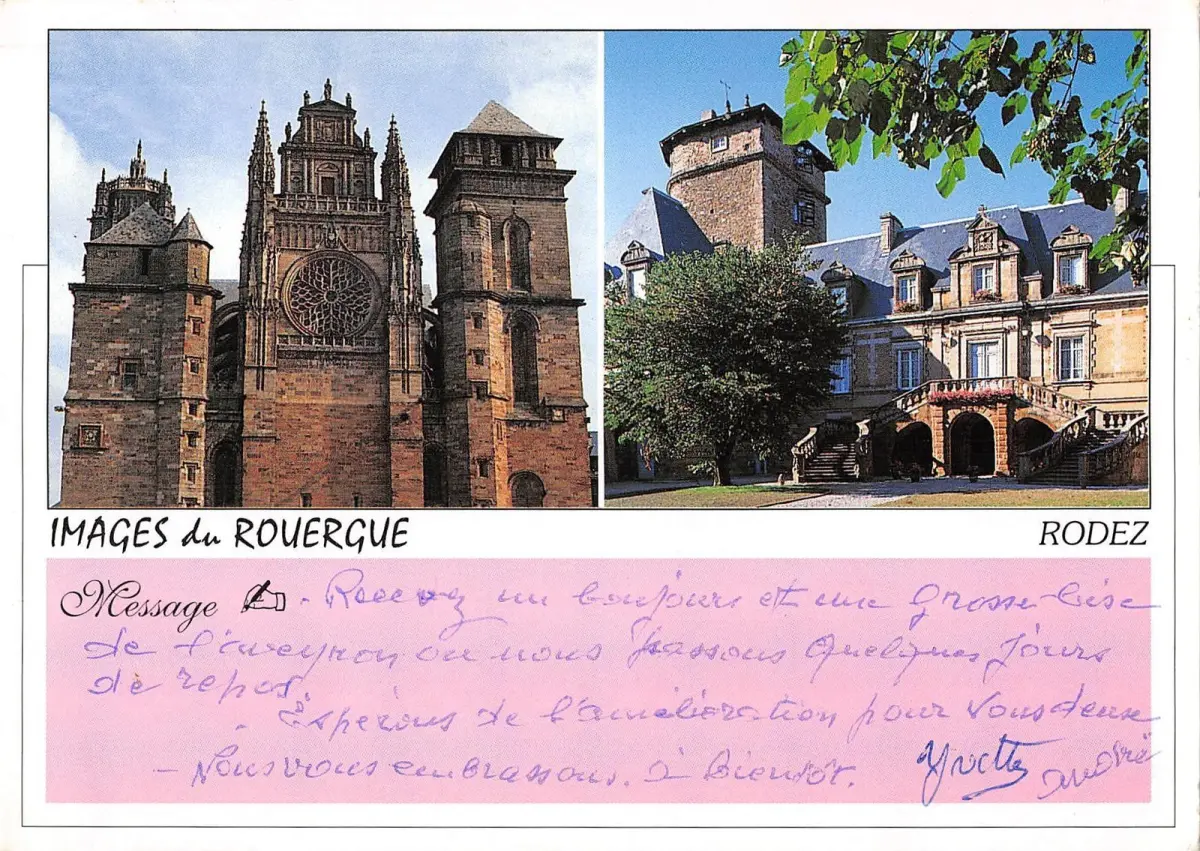 IMAGES du ROUERGUE
RODEZ
Message - Recevez un bonjours et une grosse bise
de l'aveyron ou nous passons quelques jours
de repos.
- Espérons de l'amélioration pour vous deux
- Nous vous embrassons. à bientôt. Yvette
André